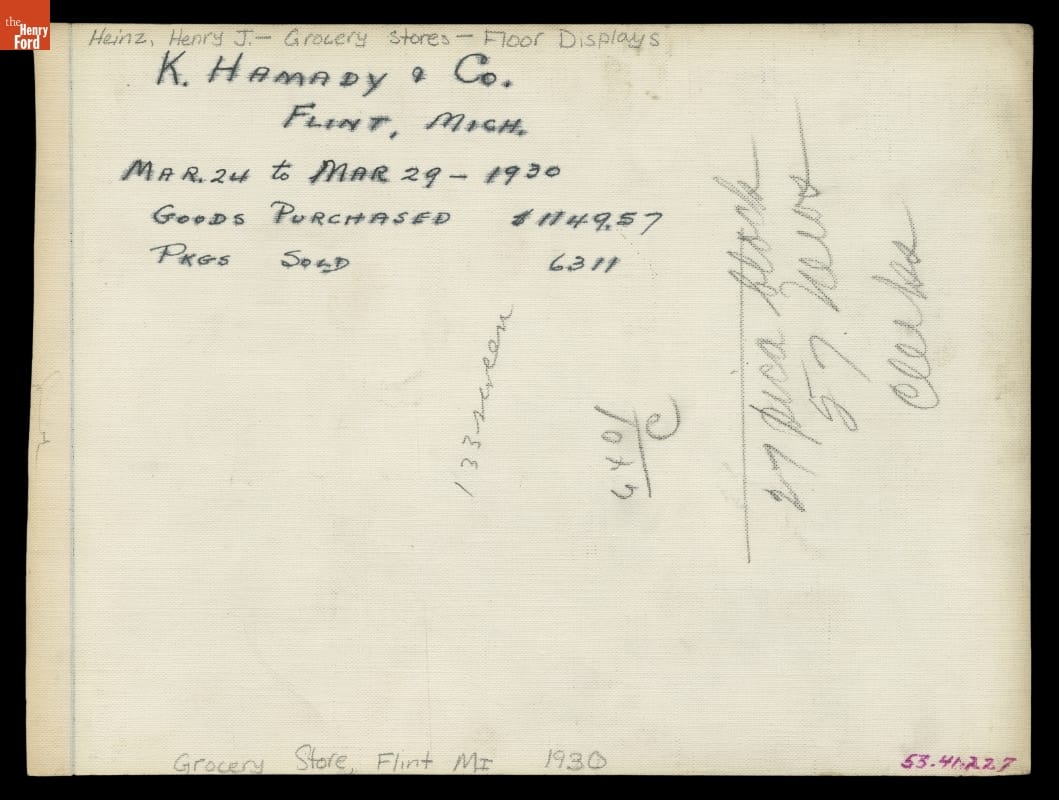 the
Henry
Ford
Heinz, Henry J. - Grocery Stores - Floor Displays
K. HAMADY & Co.
FLINT, MICH.
MAR. 24 to MAR 29 - 1930
GOODS PURCHASED $1149.57
PKGS SOLD 6311
133-screen
C
27 pica block
57 News
Clerks
Grocery Store, Flint MI 1930
53.41.227